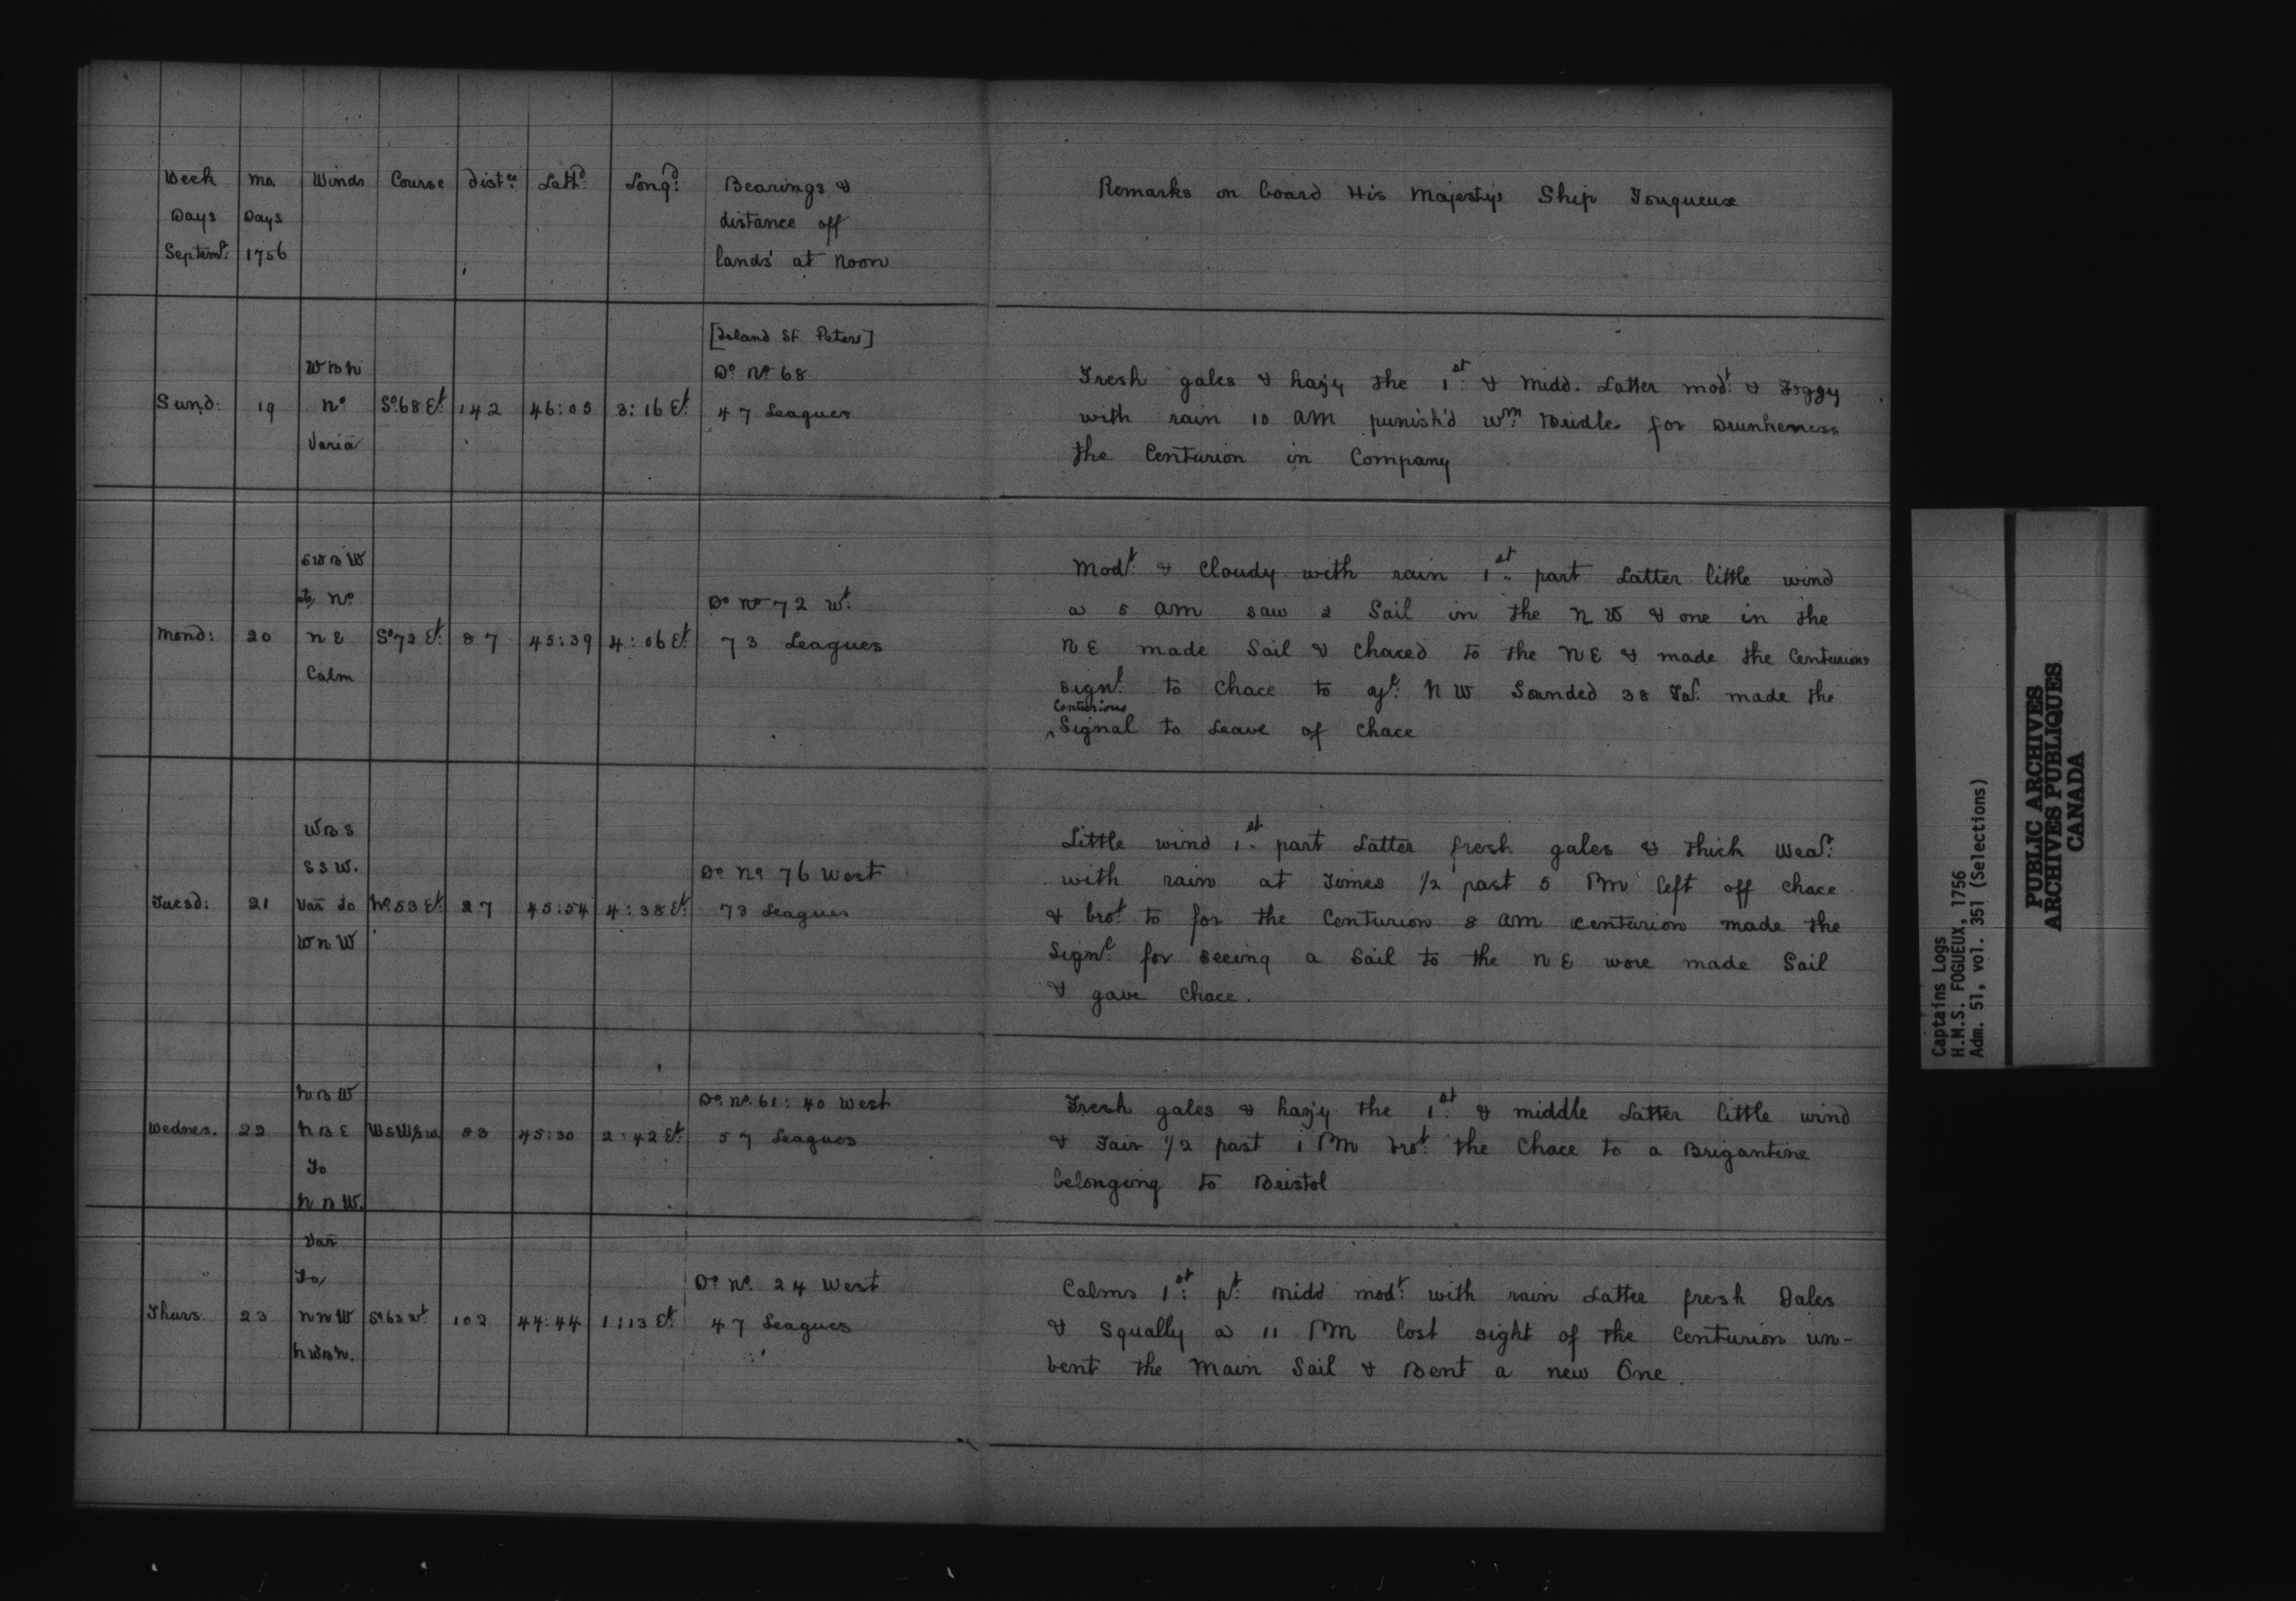 Week Mo. Winds Course Distce: Lattd: Longd: Bearings & Remarks on board His Majestys Ship Fougueux
Days Days distance off
Septemr: 1756 lands' at Noon
[Island St. Peters]
WBN Do No 68 Fresh gales & hazy the 1st: & Midd. Latter modt: & Foggy
Sund: 19 No So:68 Et: 142 46:05 3:16 Et: 47 Leagues with rain 10 AM punish'd Wm: Beidle for Drunkeness
Varia the Centurion in Company
SWBW Modt: & Cloudy with rain 1st: part Latter little wind
to No Do No 72 Wt: a 5 am saw 2 Sail in the N W & one in the
Mond: 20 N E So 72 Et: 87 45:39 4:06 Et: 73 Leagues N E made Sail & Chaced to the N E & made the Centurions
Calm signl: to Chace to N W Sounded 38 Fa: made the
Centurions
^Signal to Leave of Chace
WBS Little wind 1st: part Latter fresh gales & thick Wear:
SSW. Do No 76 West with rain at Times 1/2 past 5 PM left off Chace
Tuesd: 21 Var To No:53 Et: 27 45:54 4:38 Et: 73 Leagues & brot: to for the Centurion 8 am Centurion made the
WNW Signl: for seeing a Sail to the N E wore made Sail
& gave Chace.
NBW Do No 61:40 West Fresh gales & hazy the 1st: & middle Latter little wind
Wednes. 22 NBE WSW1/2W. 83 45:30 2:42 Et: 57 Leagues & Fair 1/2 past 1 PM brot: the Chace to a Brigantine
To belonging to Bristol
NBW.
Var
To Do No. 24 West Calms 1st: pt: Midd modt: with rain Latter fresh Gales
Thurs. 23 NNW So 63 Wt: 102 44:44 1:13 Et: 47 Leagues & Squally a 11 PM lost sight of the Centurion un-
NWBN. bent the Main Sail & Bent a new One.
Captains Logs
H.M.S. FOGUEUX, 1756
Adm. 51, vol. 351 (Selections)
PUBLIC ARCHIVES
ARCHIVES PUBLIQUES
CANADA